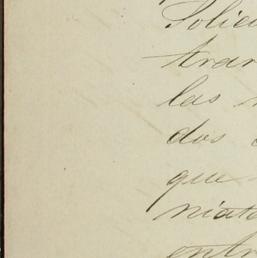 Solici
tran
las
dos
que
niato
entr